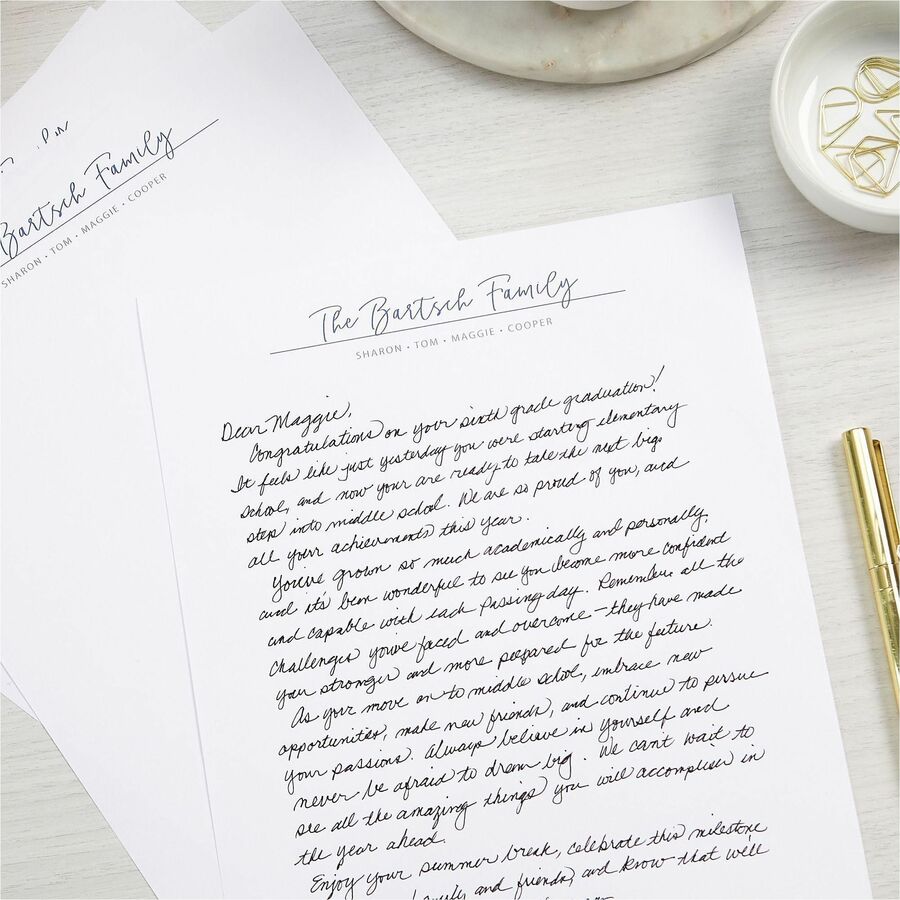 Bartsch Family
SHARON • TOM • MAGGIE • COOPER
The Bartsch Family
SHARON • TOM • MAGGIE • COOPER
Dear Maggie,
Congratulations on your sixth grade graduation!
It feels like just yesterday you were starting elementary
school, and now your are ready to take the next big
step into middle school. We are so proud of you, and
all your achievements this year.
You've grown so much academically and personally,
and it's been wonderful to see you become more confident
and capable with each passing day. Remember all the
challenges you've faced and overcome – they have made
you stronger and more prepared for the future.
As you move on to middle school, embrace new
opportunities, make new friends, and continue to pursue
your passions. Always believe in yourself and
never be afraid to dream big. We can't wait to
see all the amazing things you will accomplish in
the year ahead.
Enjoy your summer break, celebrate this milestone
family and friends, and know that we'll